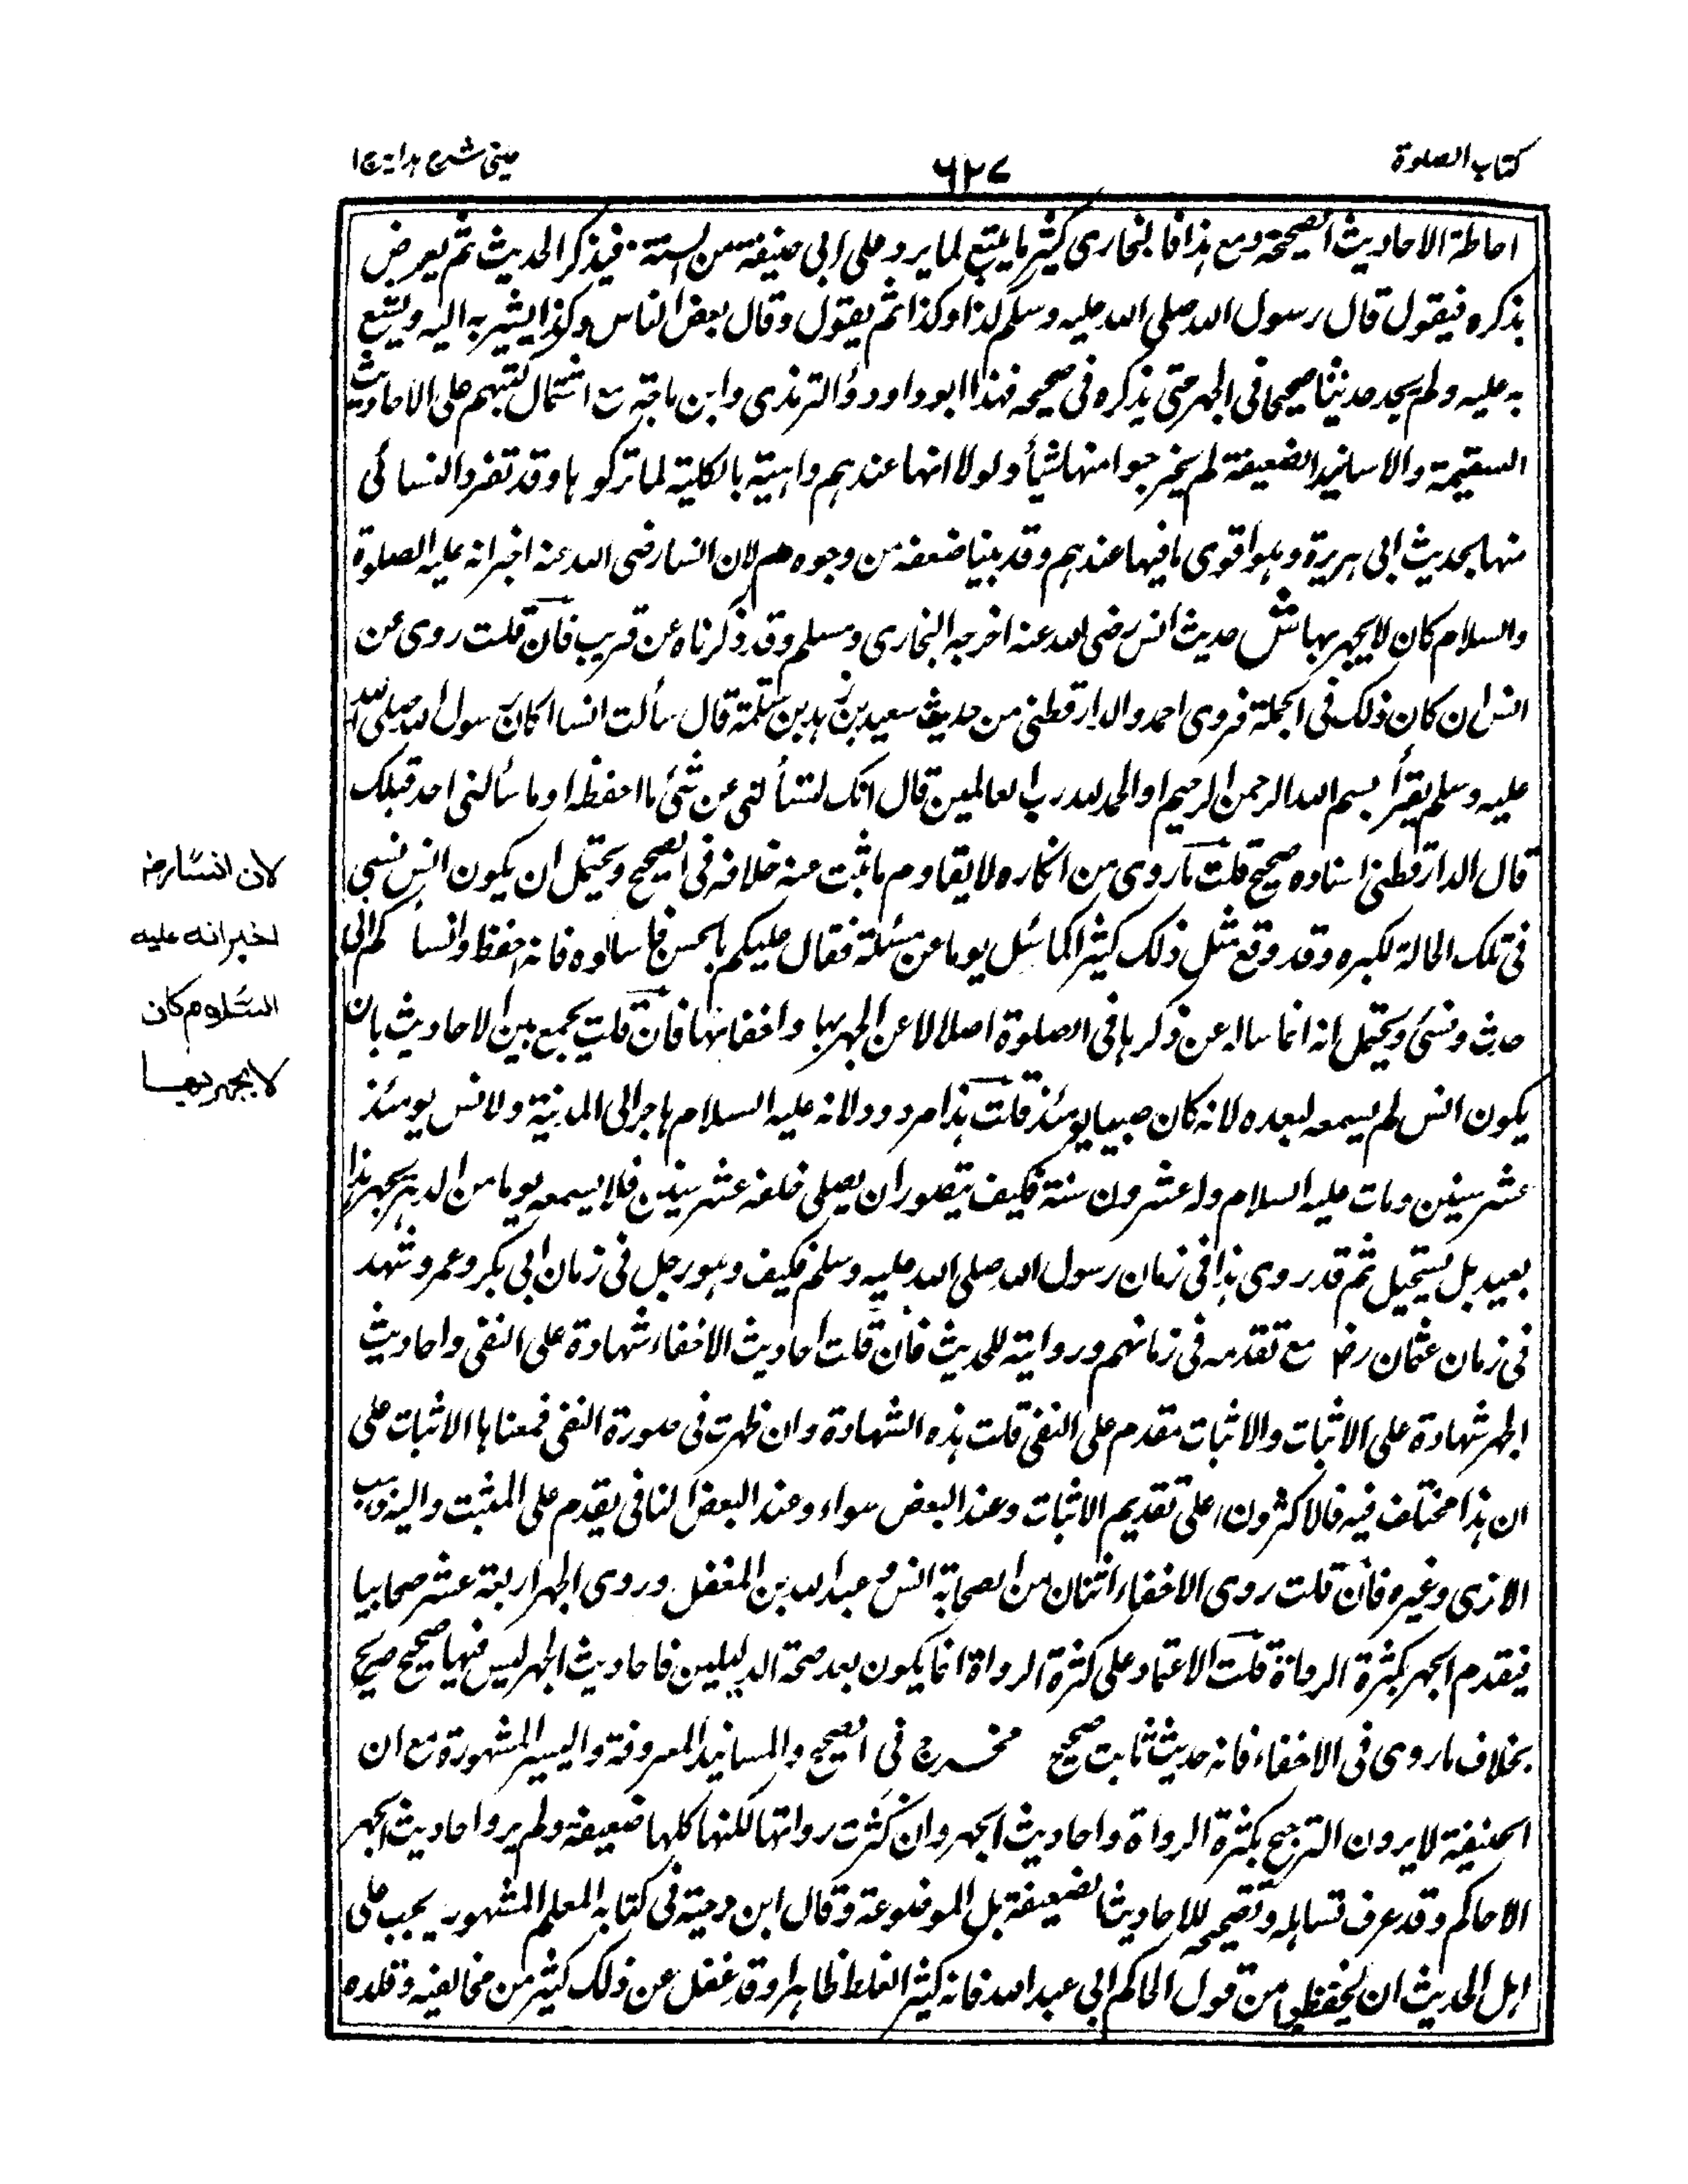 كتاب الصلوة
٦٢٧
عينى شرح هداية ج١
احاطة الاحاديث الصحيحة ومع هذا فالبخارى كثير ما يتتبع لما يرد على ابى حنيفة من السنة فيذكر الحديث ثم يعرض
بذكره فيقول قال رسول الله صلى الله عليه وسلم كذا وكذا ثم يقول وقال بعض الناس وكذا يشير به اليه ويشنع
به عليه ولم يجد حديثا صحيحا فى الجهر حتى يذكره فى صحيحه فهذا ابو داود والترمذى وابن ماجة مع اشتمال كتبهم على الاحاديث
السقيمة والاسانيد الضعيفة لم يخرجوا منها شيأ ولولا انها عندهم واهية بالكلية لما تركوها وقد تفرد النسائى
منها بحديث ابى هريرة وهو اقوى ما فيها عندهم وقد بينا ضعفه من وجوه هم لان انسا رضى الله عنه اخبر انه عليه الصلوة
والسلام كان لا يجهر بها ش حديث انس رضى الله عنه اخرجه البخارى ومسلم وقد ذكرناه عن قريب فان قلت روى عن
انس ان كان ذلك فى الجملة فروى احمد والدارقطنى من حديث سعيد بن يزيد بن سلمة قال سألت انسا اكان رسول الله صلى الله
عليه وسلم يقرأ بسم الله الرحمن الرحيم او الحمد لله رب العالمين قال انك لتسألنى عن شئ ما احفظه او ما سألنى احد قبلك
قال الدارقطنى اسناده صحيح قلت ما روى من انكاره لا يقاوم ما ثبت عنه خلافه فى الصحيح ويحتمل ان يكون انس نسى
فى تلك الحالة لكبره وقد وقع مثل ذلك كثيرا كما سئل يوما عن مسئلة فقال عليكم بالحسن فاسالوه فانه حفظ وانسا كم الى
حدث ونسى ويحتمل انه انما سأله عن ذكرها فى الصلوة اصلا لا عن الجهر بها واخفائها فان قلت يجمع بين الاحاديث بان
يكون انس لم يسمعه لبعده لانه كان صبيا يومئذ قلت هذا مردود لانه عليه السلام هاجر الى المدينة ولانس يومئذ
عشر سنين ومات عليه السلام وله عشرون سنة فكيف يتصور ان يصلى خلفه عشر سنين فلا يسمعه يوما من الدهر يجهر هذا
بعيد بل يستحيل ثم قد روى هذا فى زمان رسول الله صلى الله عليه وسلم فكيف وهو رجل فى زمان ابى بكر وعمر وشهد
فى زمان عثمان رض مع تقدمه فى زمانهم وروايته للحديث فان قلت احاديث الاخفاء شهادة على النفى واحاديث
الجهر شهادة على الاثبات والاثبات مقدم على النفى قلت هذه الشهادة وان ظهرت فى صورة النفى فمعناها الاثبات على
ان هذا مختلف فيه فالاكثرون على تقديم الاثبات وعند البعض سواء وعند البعض النافى يقدم على المثبت واليه ذهب
الامدى وغيره فان قلت روى الاخفاء اثنان من الصحابة انس وعبد الله بن المغفل وروى الجهر اربعة عشر صحابيا
فيقدم الجهر بكثرة الرواة قلت الاعتماد على كثرة الرواة انما يكون بعد صحة الدليلين فاحاديث الجهر ليس فيها صحيح صريح
بخلاف ما روى فى الاخفاء فانه حديث ثابت صحيح مخرج فى الصحيح والمسانيد المعروفة والسير المشهورة مع ان
الحنيفة لا يرون الترجيح بكثرة الرواة واحاديث الجهر وان كثرت رواتها لكنها كلها ضعيفة ولم يرو احاديث الجهر
الا حاكم وقد عرف تساهله وتصحيحه للاحاديث الضعيفة بل الموضوعة وقال ابن دحية فى كتابه المعلم المشهور يجب على
اهل الحديث ان يحفظوا من قول الحاكم ابى عبد الله فانه كثير الغلط ظاهرا وقد غفل عن ذلك كثير من مخالفيه وقلده
لان انسًا رض
اخبر انه عليه
السَّلام كان
لا يجهر بها